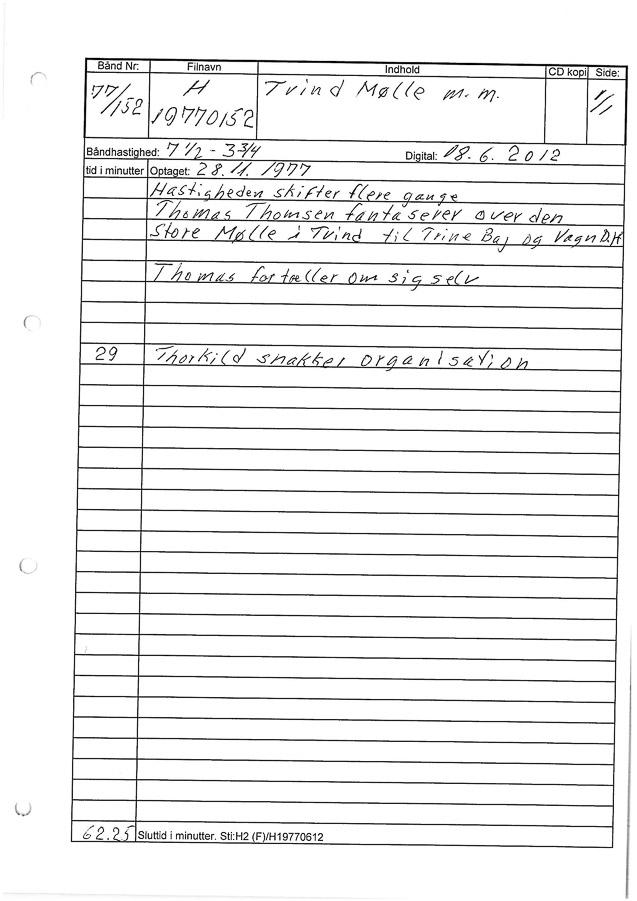 Bånd Nr: Filnavn Indhold CD kopi Side:
77/152 H 19770152 Tvind Mølle m.m. 1/1
Båndhastighed: 7 1/2 - 3 3/4 Digital: 18.6.2012
tid i minutter Optaget: 28.11.1977
Hastigheden skifter flere gange
Thomas Thomsen fantaserer over den
Store Mølle i Tvind til Trine Baj og Vagn D.H
Thomas fortæller om sig selv
29 Thorkild snakker organisation
62.25 Sluttid i minutter. Sti:H2 (F)/H19770612